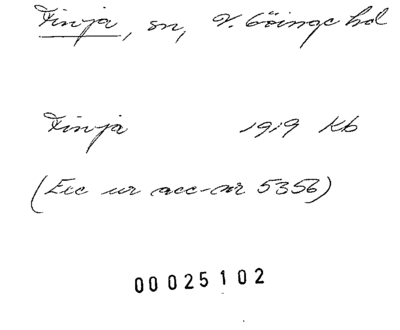 Finja, sn, V. Göinge hd
Finja 1919 Kb
(Exc ur acc-nr 5356)
00025102